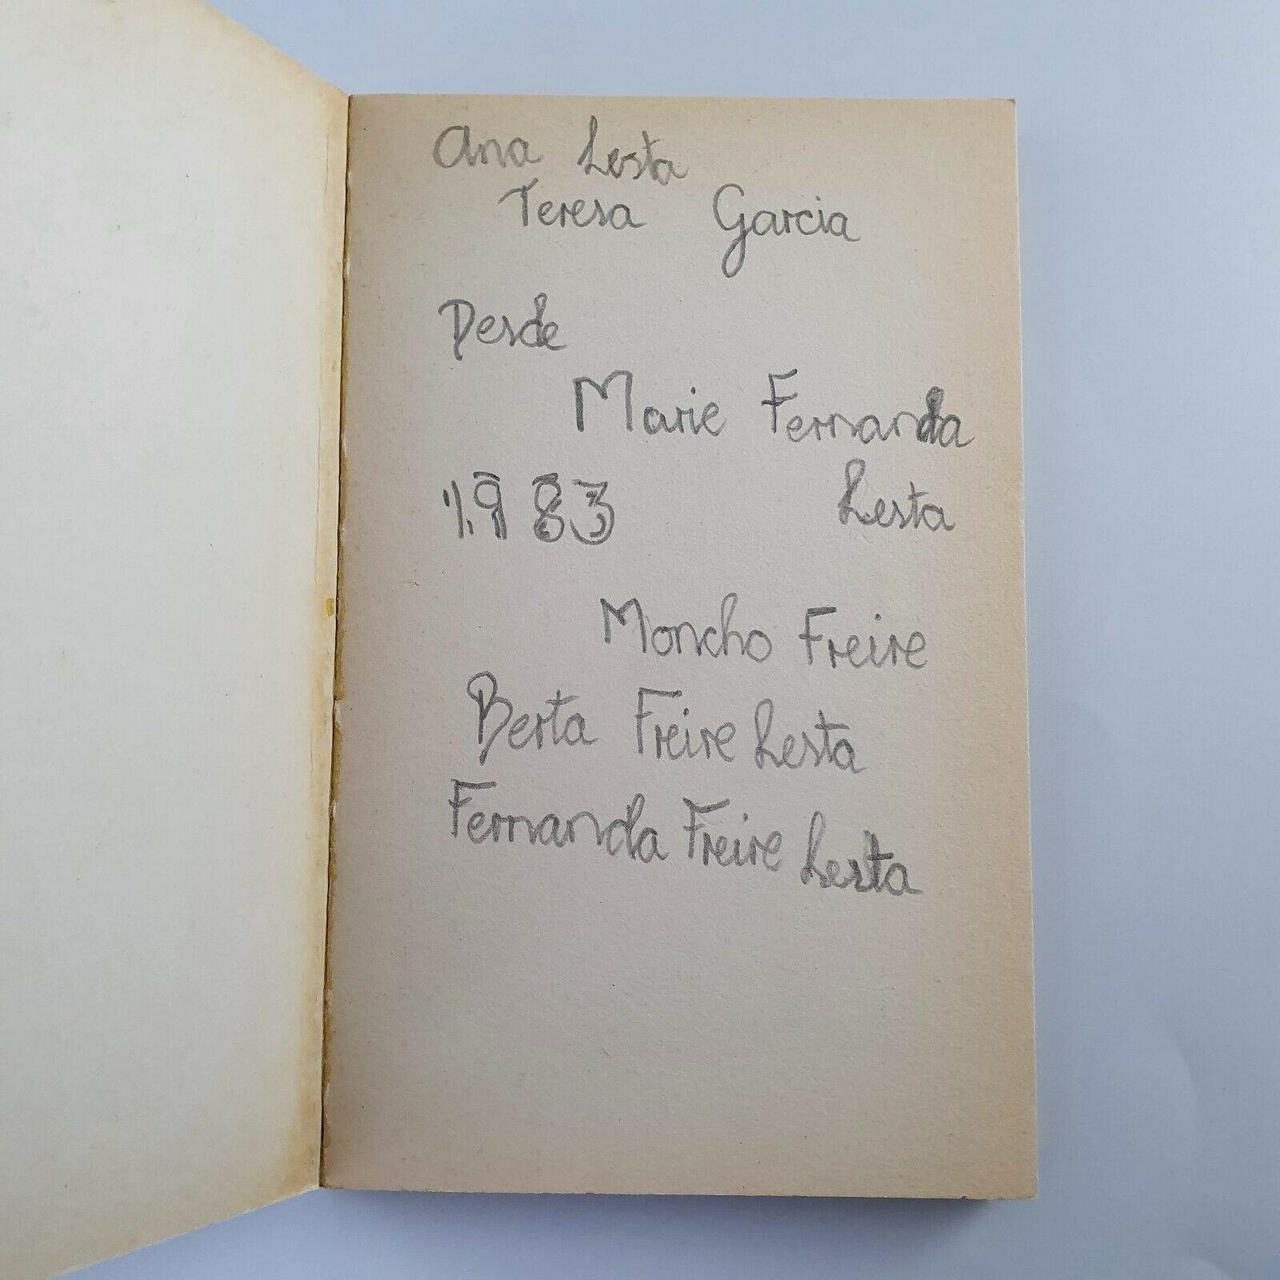 Ana Lesta
Teresa Garcia
Desde
Marie Fernanda
1983 Lesta
Moncho Freire
Berta Freire Lesta
Fernanda Freire Lesta